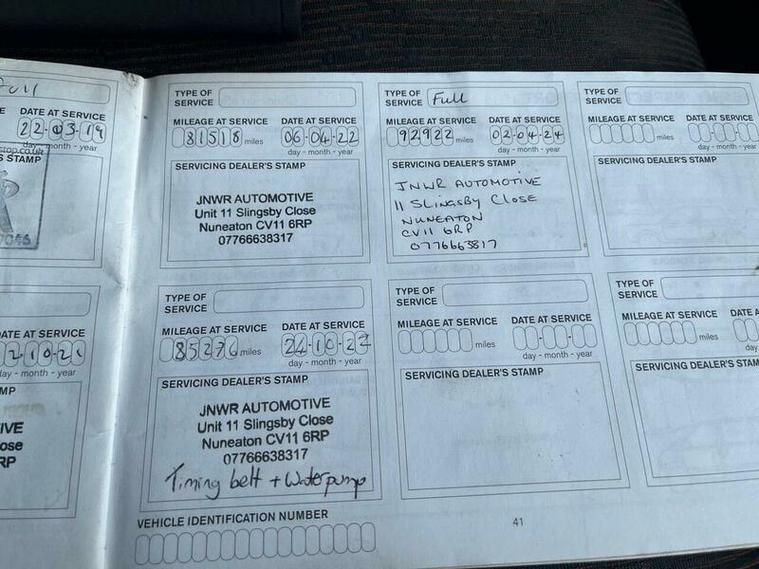 Full
DATE AT SERVICE
22-03-19
day - month - year
stop.co.uk
S STAMP
DATE AT SERVICE
2-10-21
day - month - year
MP
IVE
ose
RP
TYPE OF
SERVICE
MILEAGE AT SERVICE DATE AT SERVICE
81518 miles 06-04-22
day - month - year
SERVICING DEALER'S STAMP
JNWR AUTOMOTIVE
Unit 11 Slingsby Close
Nuneaton CV11 6RP
07766638317
TYPE OF
SERVICE
MILEAGE AT SERVICE DATE AT SERVICE
85276 miles 24-10-22
day - month - year
SERVICING DEALER'S STAMP
JNWR AUTOMOTIVE
Unit 11 Slingsby Close
Nuneaton CV11 6RP
07766638317
Timing belt + Waterpump
VEHICLE IDENTIFICATION NUMBER
TYPE OF
SERVICE Full
MILEAGE AT SERVICE DATE AT SERVICE
92922 miles 02-04-24
day - month - year
SERVICING DEALER'S STAMP
JNWR AUTOMOTIVE
11 SLINGSBY CLOSE
NUNEATON
CV11 6RP
0776663817
TYPE OF
SERVICE
MILEAGE AT SERVICE DATE AT SERVICE
miles
day - month - year
SERVICING DEALER'S STAMP
41
TYPE OF
SERVICE
MILEAGE AT SERVICE DATE AT SERVICE
miles
day - month - year
SERVICING DEALER'S STAMP
TYPE OF
SERVICE
MILEAGE AT SERVICE DATE A
miles
day
SERVICING DEALER'S STAM